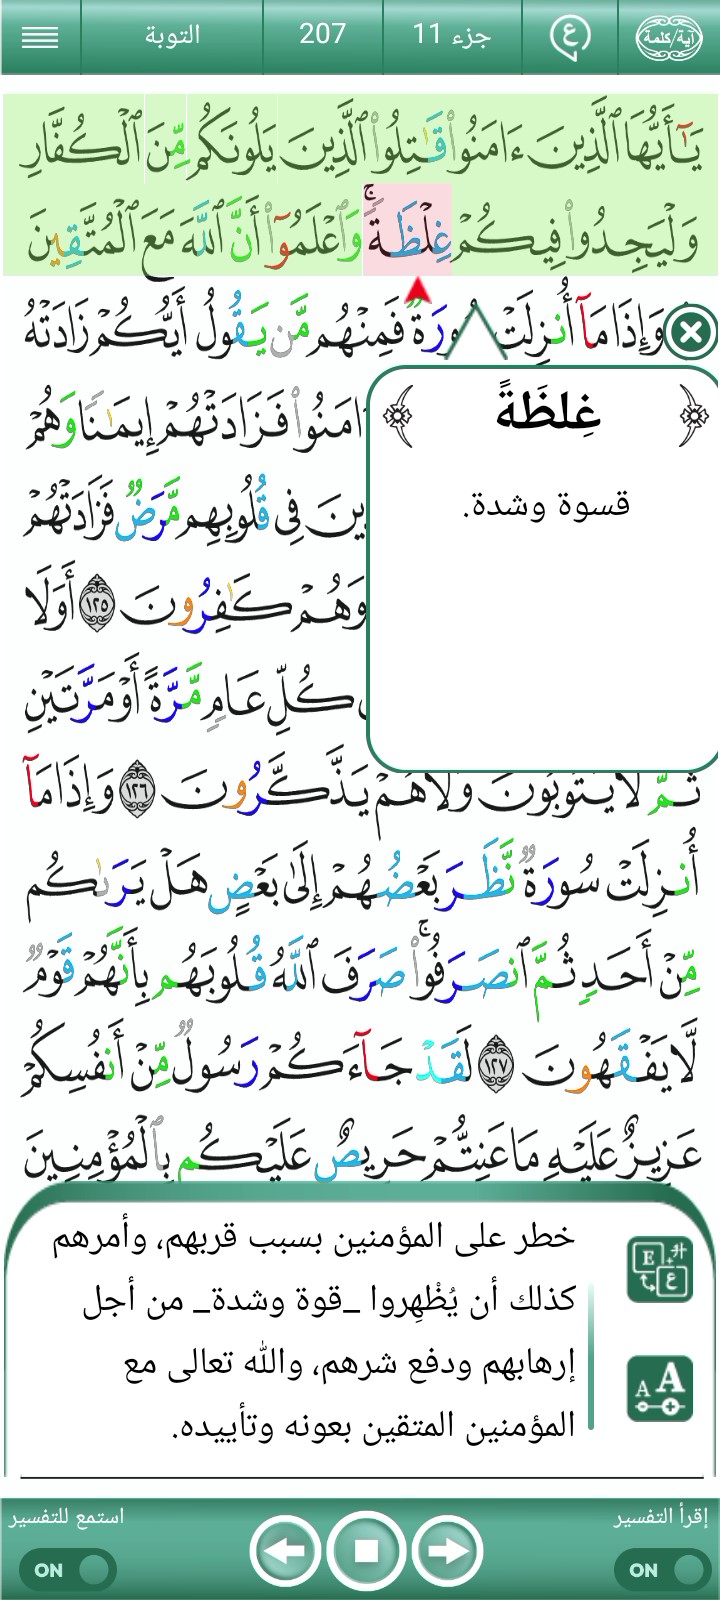 آية/كلمة
ع
جزء 11
207
التوبة
يَـٰٓأَيُّهَا ٱلَّذِينَ ءَامَنُوا۟ قَـٰتِلُوا۟ ٱلَّذِينَ يَلُونَكُم مِّنَ ٱلْكُفَّارِ
وَلْيَجِدُوا۟ فِيكُمْ غِلْظَةً ۚ وَٱعْلَمُوٓا۟ أَنَّ ٱللَّهَ مَعَ ٱلْمُتَّقِينَ
وَإِذَا مَآ أُنزِلَتْ سُورَةٌ فَمِنْهُم مَّن يَقُولُ أَيُّكُمْ زَادَتْهُ
ءَامَنُوا۟ فَزَادَتْهُمْ إِيمَـٰنًا وَهُمْ
فِى قُلُوبِهِم مَّرَضٌ فَزَادَتْهُمْ
وَهُمْ كَـٰفِرُونَ ١٢٥ أَوَلَا
كُلِّ عَامٍ مَّرَّةً أَوْ مَرَّتَيْنِ
ثُمَّ لَا يَتُوبُونَ وَلَا هُمْ يَذَّكَّرُونَ ١٢٦ وَإِذَا مَآ
أُنزِلَتْ سُورَةٌ نَّظَرَ بَعْضُهُمْ إِلَىٰ بَعْضٍ هَلْ يَرَىٰكُم
مِّنْ أَحَدٍ ثُمَّ ٱنصَرَفُوا۟ ۚ صَرَفَ ٱللَّهُ قُلُوبَهُم بِأَنَّهُمْ قَوْمٌ
لَّا يَفْقَهُونَ ١٢٧ لَقَدْ جَآءَكُمْ رَسُولٌ مِّنْ أَنفُسِكُمْ
عَزِيزٌ عَلَيْهِ مَا عَنِتُّمْ حَرِيصٌ عَلَيْكُم بِٱلْمُؤْمِنِينَ
غِلظَةً
قسوة وشدة.
خطر على المؤمنين بسبب قربهم، وأمرهم
كذلك أن يُظْهِروا _قوة وشدة_ من أجل
إرهابهم ودفع شرهم، والله تعالى مع
المؤمنين المتقين بعونه وتأييده.
E
ع
A A
إقرأ التفسير
استمع للتفسير
ON
ON